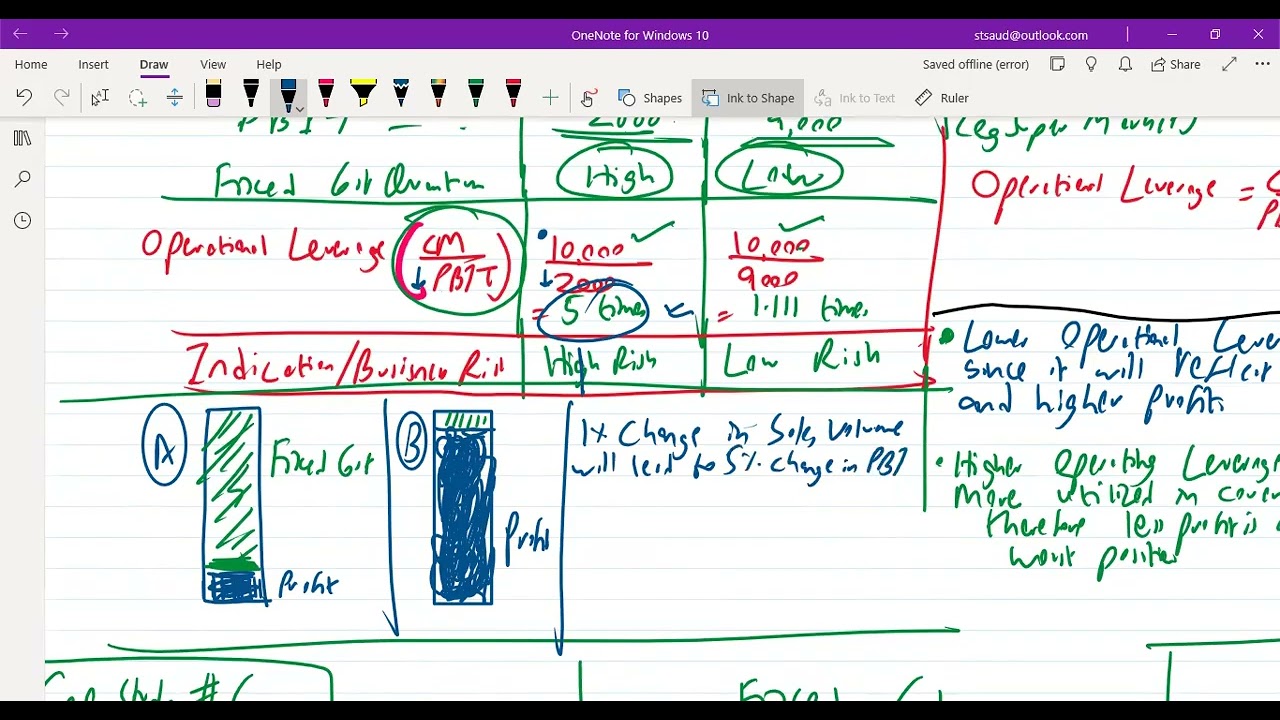 OneNote for Windows 10
stsaud@outlook.com
Home Insert Draw View Help
Saved offline (error)
Share
Shapes
Ink to Shape
Ink to Text
Ruler
PBIT = ?
2000
9,000
Operational Leverage =
High
Low
Operational Leverage
CM
PBIT
10,000
2000
= 5 times
10,000
9000
= 1.111 times
Indication/Business Risk
High Risk
Low Risk
Lower Operational Lever
since it will reflect
and higher profits
A
Fixed Cost
Profit
B
Profit
1% Change in Sales Volume
will lead to 5% change in PBT
Higher Operating Leverage
More utilized in cover
therefore less profit is
worst position
Case Study #